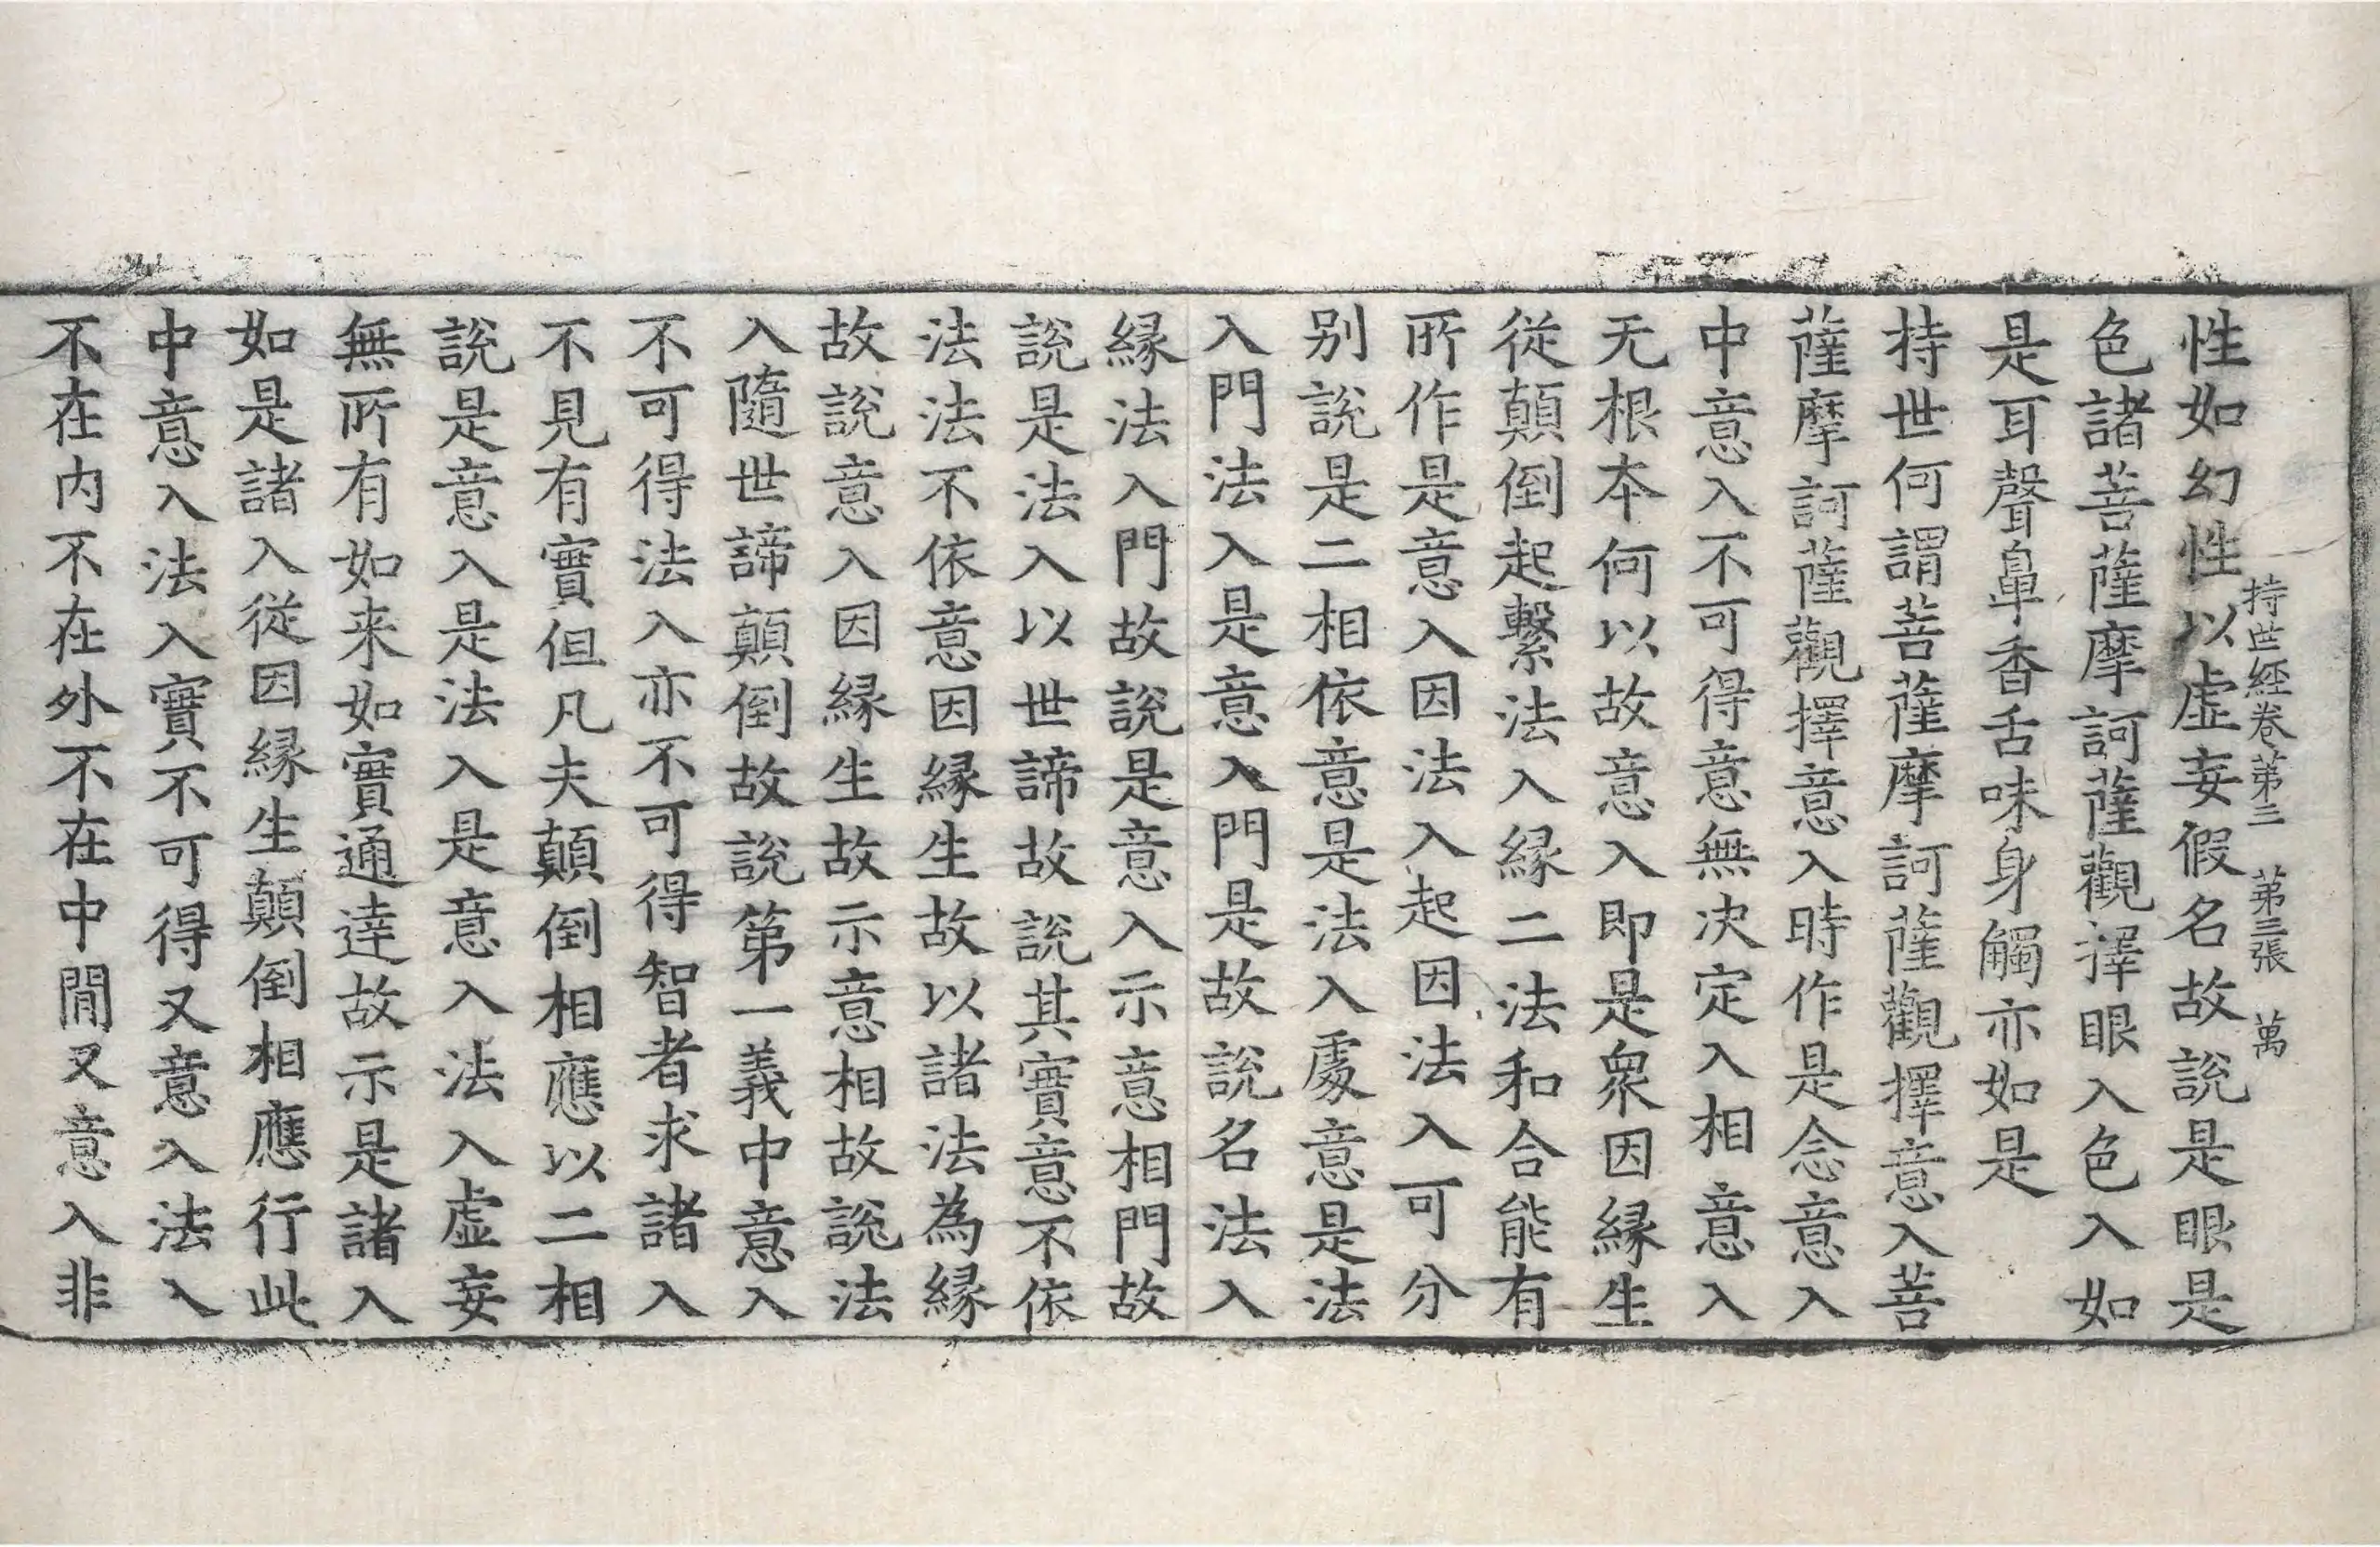 性如幻性以虛妄假名故說是眼是
持世經卷第三　第三張　萬
色諸菩薩摩訶薩觀擇眼入色入如
是耳聲鼻香舌味身觸亦如是
持世何謂菩薩摩訶薩觀擇意入菩
薩摩訶薩觀擇意入時作是念意入
中意入不可得意無決定入相意入
无根本何以故意入即是衆因緣生
從顛倒起繫法入緣二法和合能有
所作是意入因法入起因法入可分
別說是二相依意是法入處意是法
入門法入是意入門是故說名法入
緣法入門故說是意入示意相門故
說是法入以世諦故說其實意不依
法法不依意因緣生故以諸法為緣
故說意入因緣生故示意相故說法
入隨世諦顛倒故說第一義中意入
不可得法入亦不可得智者求諸入
不見有實但凡夫顛倒相應以二相
說是意入是法入是意入法入虛妄
無所有如来如實通達故示是諸入
如是諸入從因緣生顛倒相應行此
中意入法入實不可得又意入法入
不在内不在外不在中閒又意入非